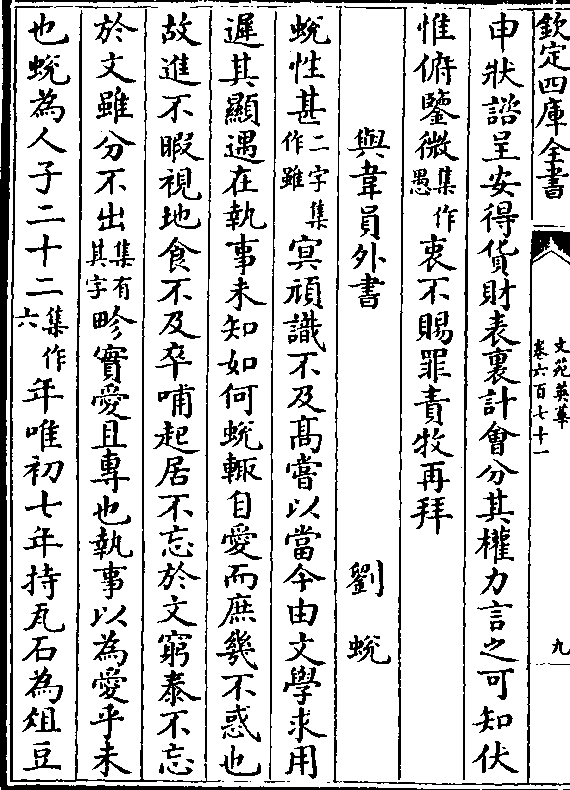 欽定四庫全書
文苑英華
卷六百七十一
九
申狀諮呈安得貨財表裏計會分其權力言之可知伏
惟俯鑒微集作愚衷不賜罪責牧再拜
與韋員外書
劉蛻
蛻性甚二字集作雖冥頑識不及髙嘗以當今由文學求用
遲其顯遇在執事未知如何蛻輙自愛而庶幾不惑也
故進不暇視地食不及卒哺起居不忘於文窮泰不忘
於文雖分不出集有其字畛實愛且專也執事以為愛乎未
也蛻為人子二十二集作六年唯初七年持瓦石為俎豆